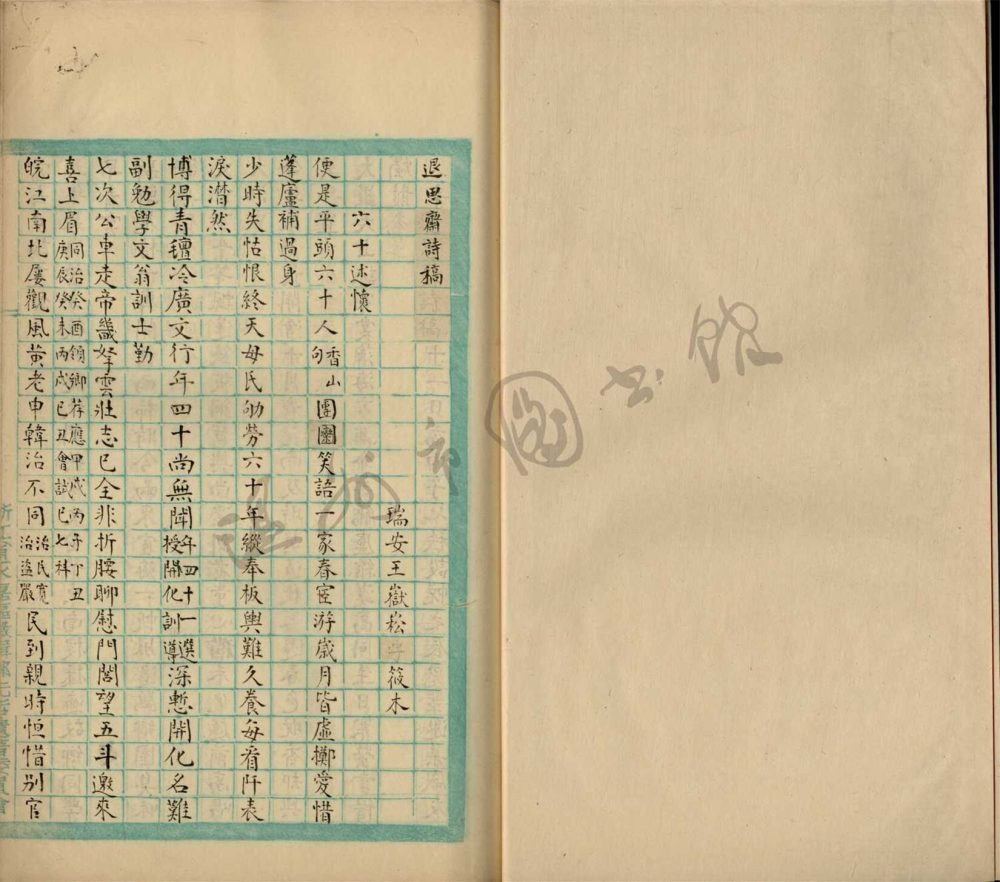 退思齋詩稿
瑞安王嶽崧 筱木
六十述懷
便是平頭六十人香山句團圞笑語一家春宦游歲月皆虛擲愛惜
蘧廬補過身
少時失怙恨終天母氏劬勞六十年縱奉板輿難久養每看阡表
淚潸然
博得青氊冷廣文行年四十尚無聞年四十一選授開化訓導深慙開化名難
副勉學文翁訓士勤
七次公車走帝畿拏雲壯志已全非折腰聊慰門閭望五斗邀來
喜上眉同治癸酉領鄉荐應甲戌丙子丁丑庚辰癸未丙戌已丑會試已七科
皖江南北屢觀風黃老申韓治不同治民寬治盜嚴民到親時恒惜別官
圖書館